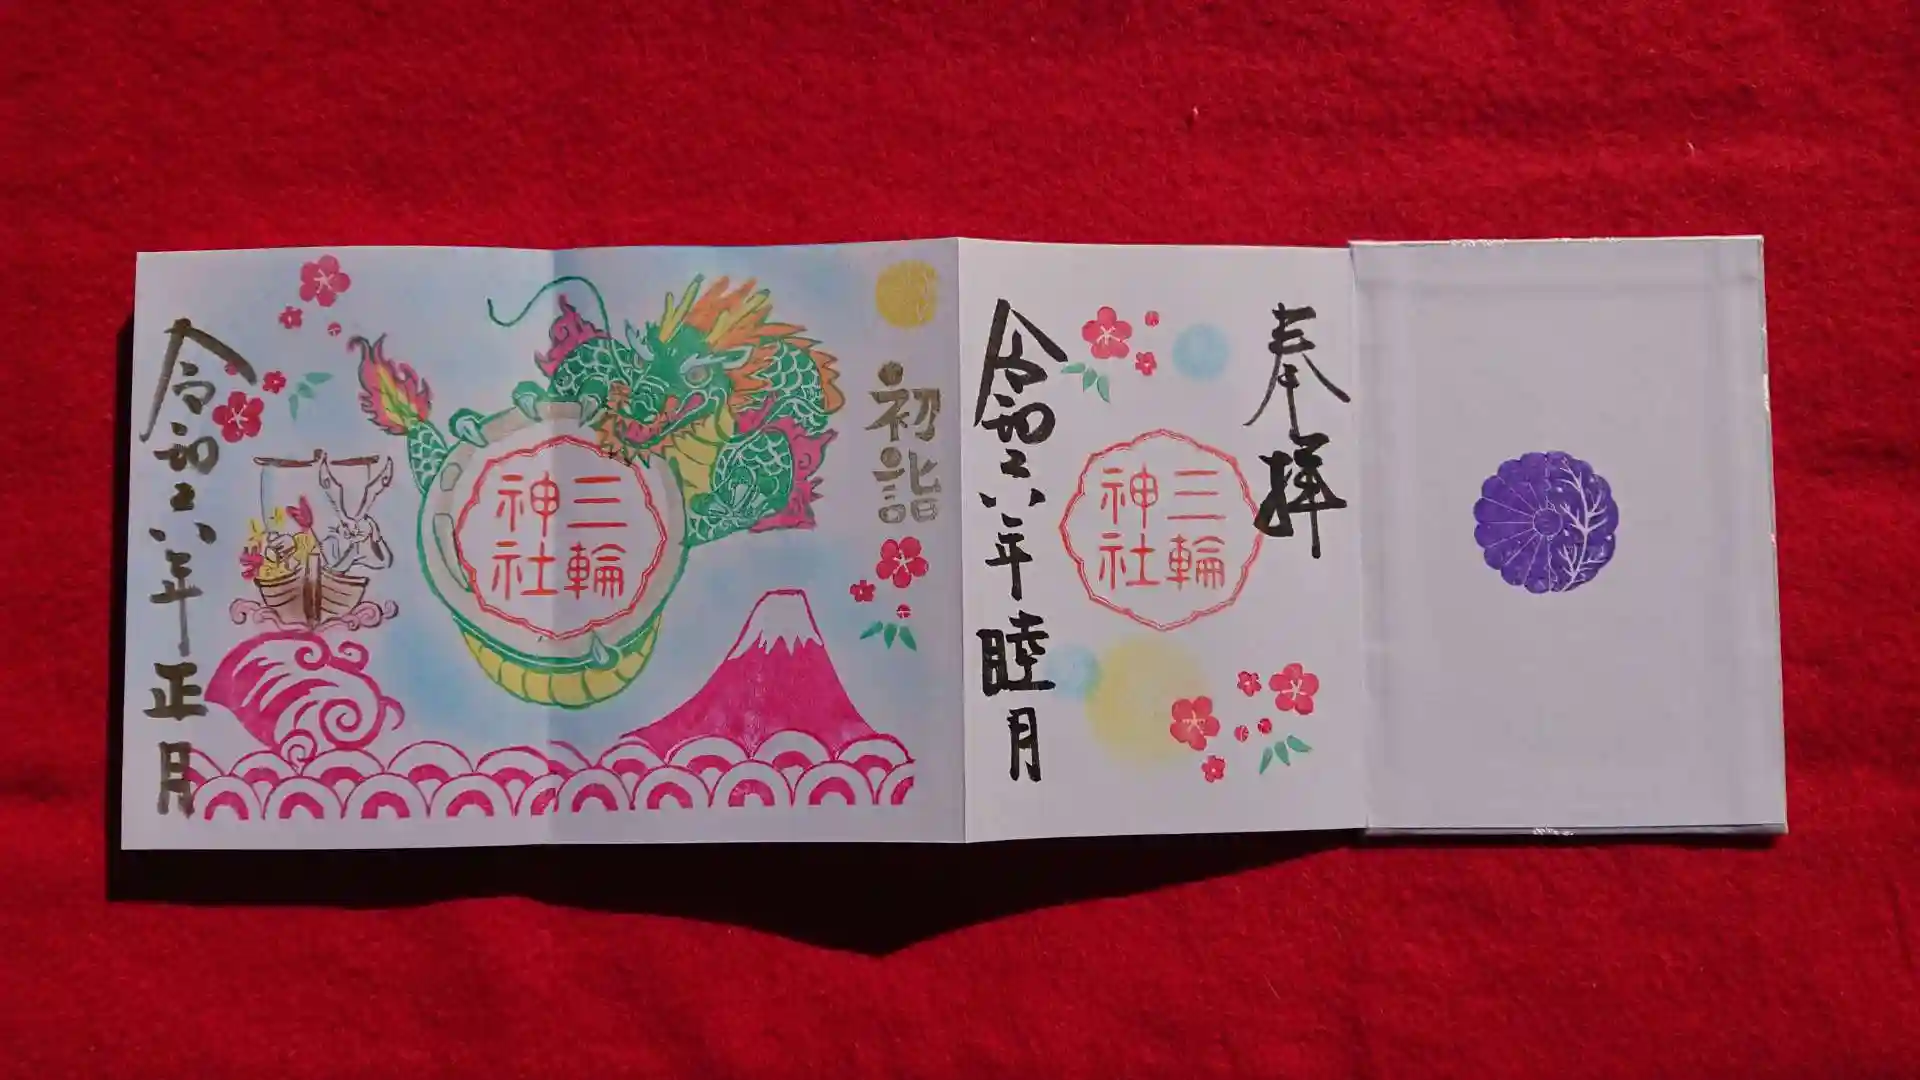 奉拝
三輪
神社
令和六年睦月
初詣
三輪
神社
令和六年正月